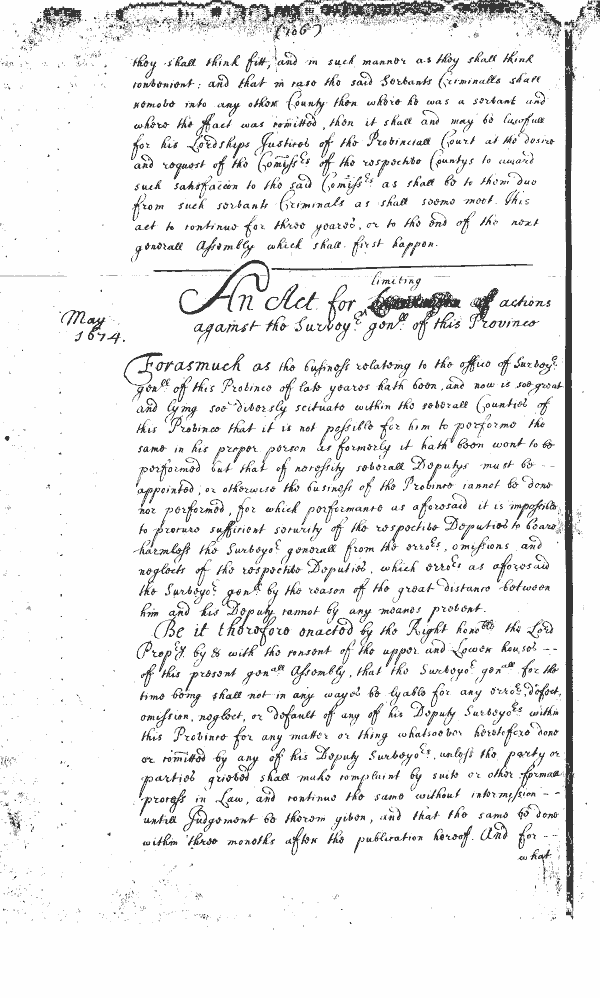 (106)
they shall think fitt, and in such manner as they shall think
convenient: and that in case the said Servants Criminalls shall
remove into any other County then where he was a servant and
where the ffact was comitted, then it shall and may be lawfull
for his Lordships Justices of the Provinciall Court at the desire
and request of the Comissrs of the respective Countys to award
such satisfaccon to the said Comissrs as shall be to them due
from such servants Criminals as shall seeme meet. This
act to continue for three yeares, or to the end of the next
generall Assembly which shall first happen.
limiting
An Act for actions
against the Surveyr genll of this Province
May
1674.
Forasmuch as the business relateing to the office of Surveyr
genll of this Province of late yeares hath been, and now is soe great
and lying soe diversly scituate within the severall Counties of
this Province that it is not possible for him to performe the
same in his proper person as formerly it hath been wont to be
performed but that of necessity severall Deputys must be --
appointed, or otherwise the business of the Province cannot be done
nor performed, for which performance as aforesaid it is impossible
to procure sufficient security of the respective Deputies to beare
harmless the Surveyor generall from the errors, omissions and
neglects of the respective Deputies, which errors as aforesaid
the Surveyor genll by the reason of the great distance between
him and his Deputy cannot by any meanes prevent.
Be it therefore enacted by the Right honoble the Lord
Propry by & with the consent of the upper and Lower houses --
of this present genall Assembly, that the Surveyor genall for the
time being shall not in any wayes be lyable for any error, defect,
omission, neglect, or default of any of his Deputy Surveyors within
this Province for any matter or thing whatsoever heretofore done
or comitted by any of his Deputy Surveyors, unless the party or
parties grieved shall make complaint by suite or other formall
process in Law, and continue the same without intermission --
untill Judgement be therein given, and that the same be done
within three moneths after the publication hereof. And for --
what